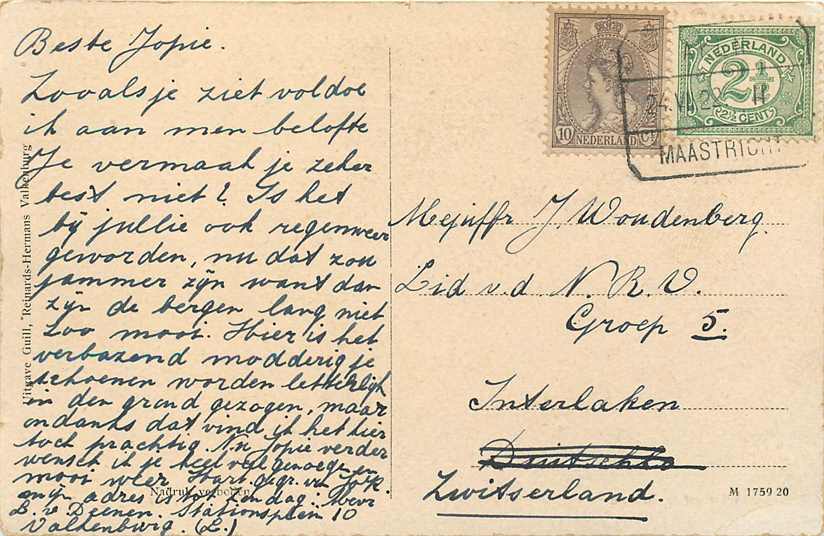 Beste Jopie.
Zooals je ziet voldoe
ik aan men belofte
Je vermaak je zeker
best niet? Is het
bij jullie ook regenweer
geworden, nu dat zou
jammer zijn want dan
zijn de bergen lang niet
zoo mooi. Hier is het
verbazend modderig je
schoenen worden letterlijk
in den grond gezogen, maar
ondanks dat vind ik het hier
toch prachtig. Nu Jopie verder
wensch ik je heel veel genoegen en
mooi weer. Hart. gegr. van
mijn adres is Zondag:
L. v Deenen. Stationsplein 10
Valkenburg. (L.)
Uitgave Guill, Reinards-Hermans Valkenburg
Nadruk verboden
10 NEDERLAND CT
NEDERLAND
2½
2½ CENT
24.VI.22
MAASTRICHT
Mejuffr J. Woudenberg.
Lid v.d. N.R.V.
Groep 5.
Interlaken
Zwitserland.
M 1759 20